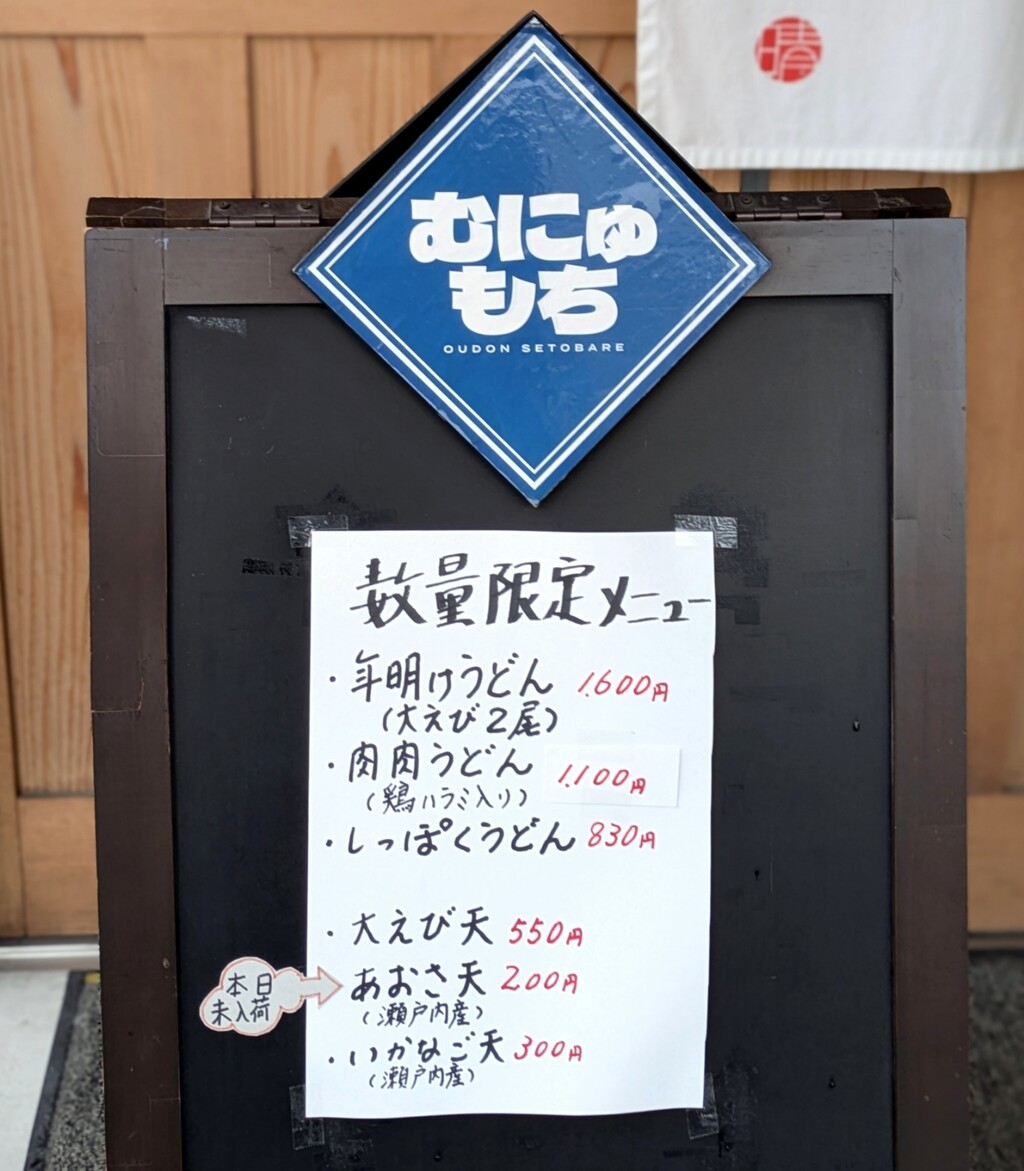 晴
むにゅ
もち
OUDON SETOBARE
数量限定メニュー
・年明けうどん 1.600円
(大えび2尾)
・肉肉うどん 1.100円
(鶏ハラミ入り)
・しっぽくうどん 830円
・大えび天 550円
本日
未入荷
あおさ天 200円
(瀬戸内産)
・いかなご天 300円
(瀬戸内産)